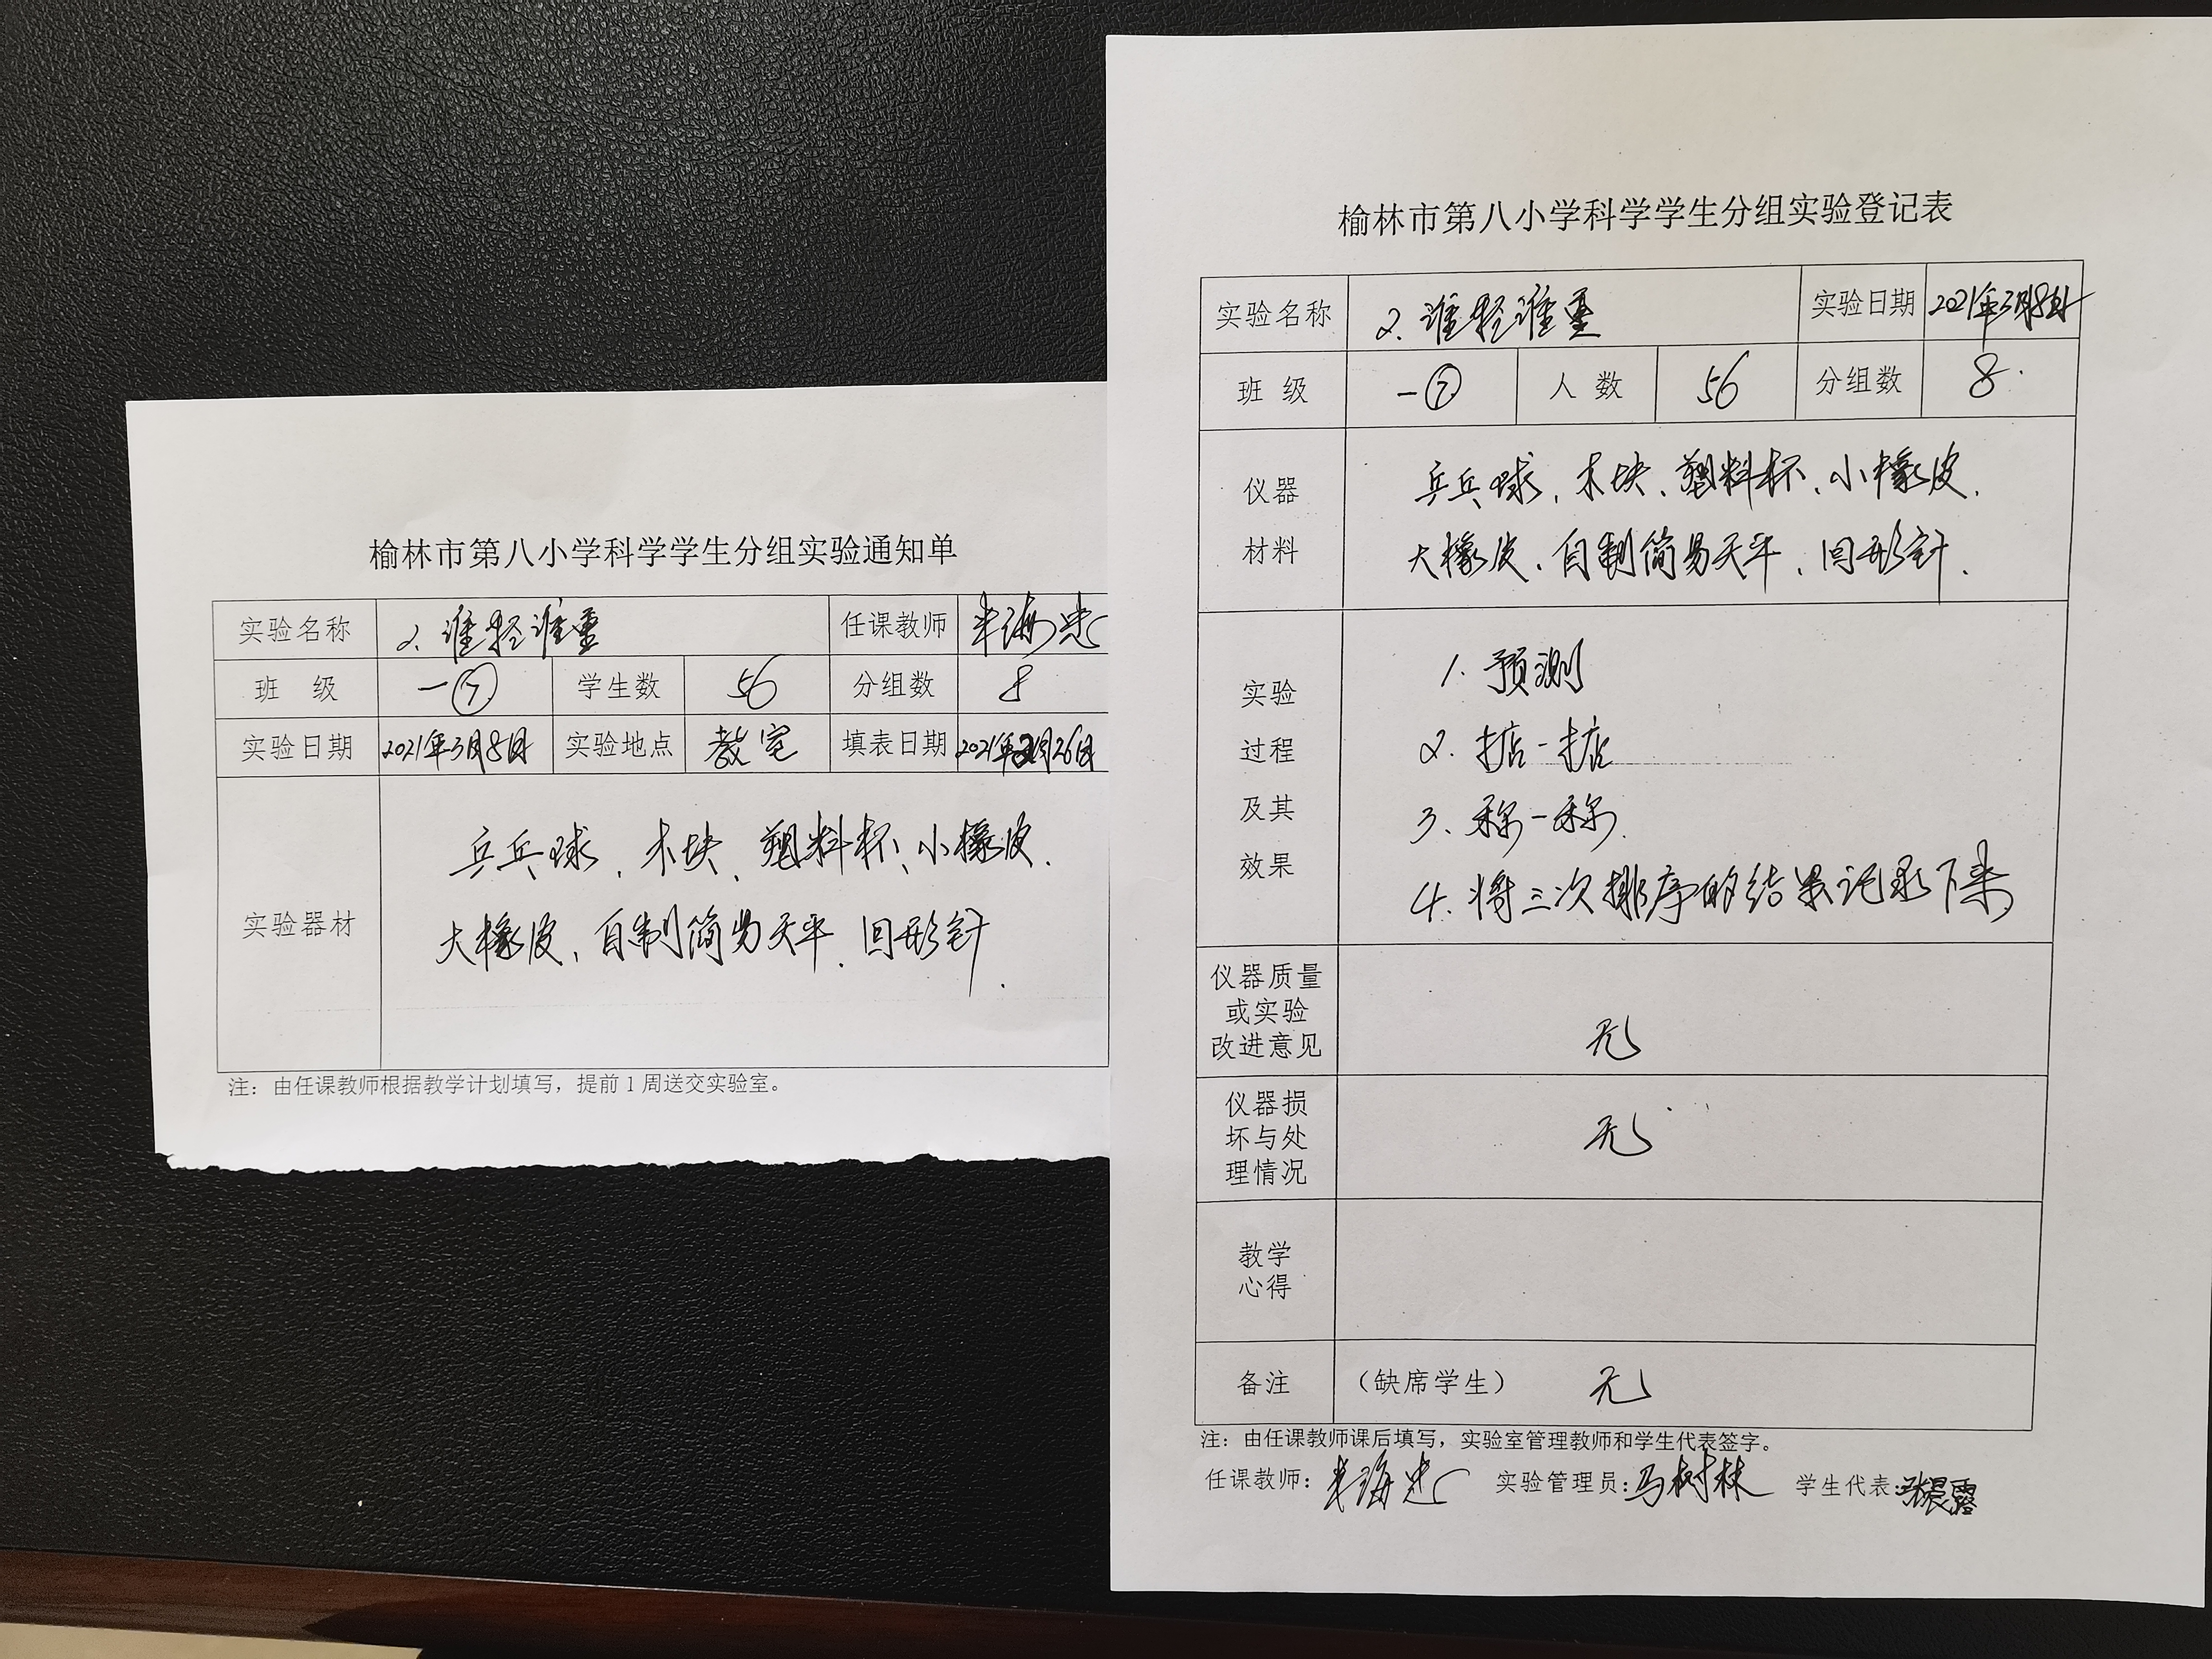 榆林市第八小学科学学生分组实验通知单
实验名称 2. 谁轻谁重 任课教师
班 级 一⑦ 学生数 56 分组数 8
实验日期 2021年3月8日 实验地点 教室 填表日期 2021年2月26日
实验器材
乒乓球、木块、塑料杯、小橡皮、
大橡皮、自制简易天平、回形针.
注：由任课教师根据教学计划填写，提前1周送交实验室。
榆林市第八小学科学学生分组实验登记表
实验名称 2. 谁轻谁重 实验日期 2021年3月8日
班 级 一⑦ 人 数 56 分组数 8
仪器
材料
乒乓球、木块、塑料杯、小橡皮、
大橡皮、自制简易天平、回形针.
实验
过程
及其
效果
1. 预测
2. 掂一掂
3. 称一称
4. 将三次排序的结果记录下来
仪器质量
或实验
改进意见
无
仪器损
坏与处
理情况
无
教学
心得
备注 （缺席学生） 无
注：由任课教师课后填写，实验室管理教师和学生代表签字。
任课教师： 实验管理员：马树林 学生代表：张晨露